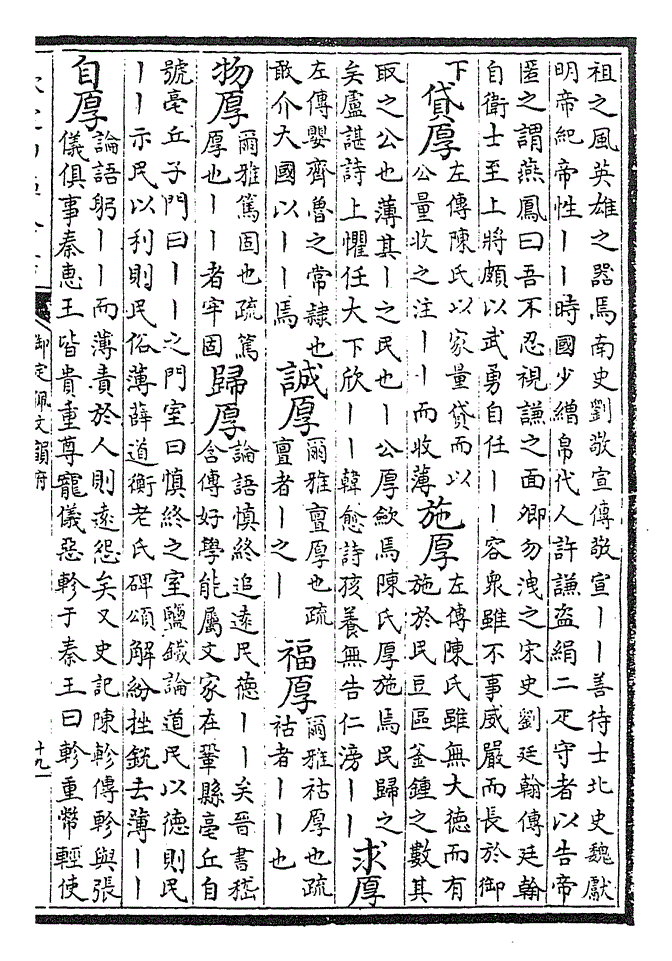 祖之風英雄之器焉南史劉敬宣傳敬宣丨丨善待士北史魏獻
明帝紀帝性丨丨時國少繒帛代人許謙盜絹二疋守者以告帝
匿之謂燕鳳曰吾不忍視謙之面卿勿洩之宋史劉廷翰傳廷翰
自衛士至上將頗以武勇自任丨丨容衆雖不事威嚴而長於御
下
貸厚
左傳陳氏以家量貸而以
公量收之注丨丨而收薄
施厚
左傳陳氏雖無大德而有
施於民豆區釜鍾之數其
取之公也薄其丨之民也丨公厚歛焉陳氏厚施焉民歸之
矣盧諶詩上懼任大下欣丨丨韓愈詩孩養無告仁滂丨丨
求厚
左傳嬰齊魯之常隸也
敢介大國以丨丨焉
誠厚
爾雅亶厚也疏
亶者丨之丨
福厚
爾雅祜厚也疏
祜者丨丨也
物厚
爾雅篤固也疏篤
厚也丨丨者牢固
歸厚
論語慎終追遠民德丨丨矣晉書嵇
含傳好學能屬文家在鞏縣亳丘自
號亳丘子門曰丨丨之門室曰慎終之室鹽鐵論道民以德則民
丨丨示民以利則民俗薄薛道衡老氏碑頌解紛挫銳去薄丨丨
自厚
論語躬丨丨而薄責於人則遠怨矣又史記陳軫傳軫與張
儀俱事秦惠王皆貴重尊寵儀惡軫于秦王曰軫重幣輕使
御定佩文韻府